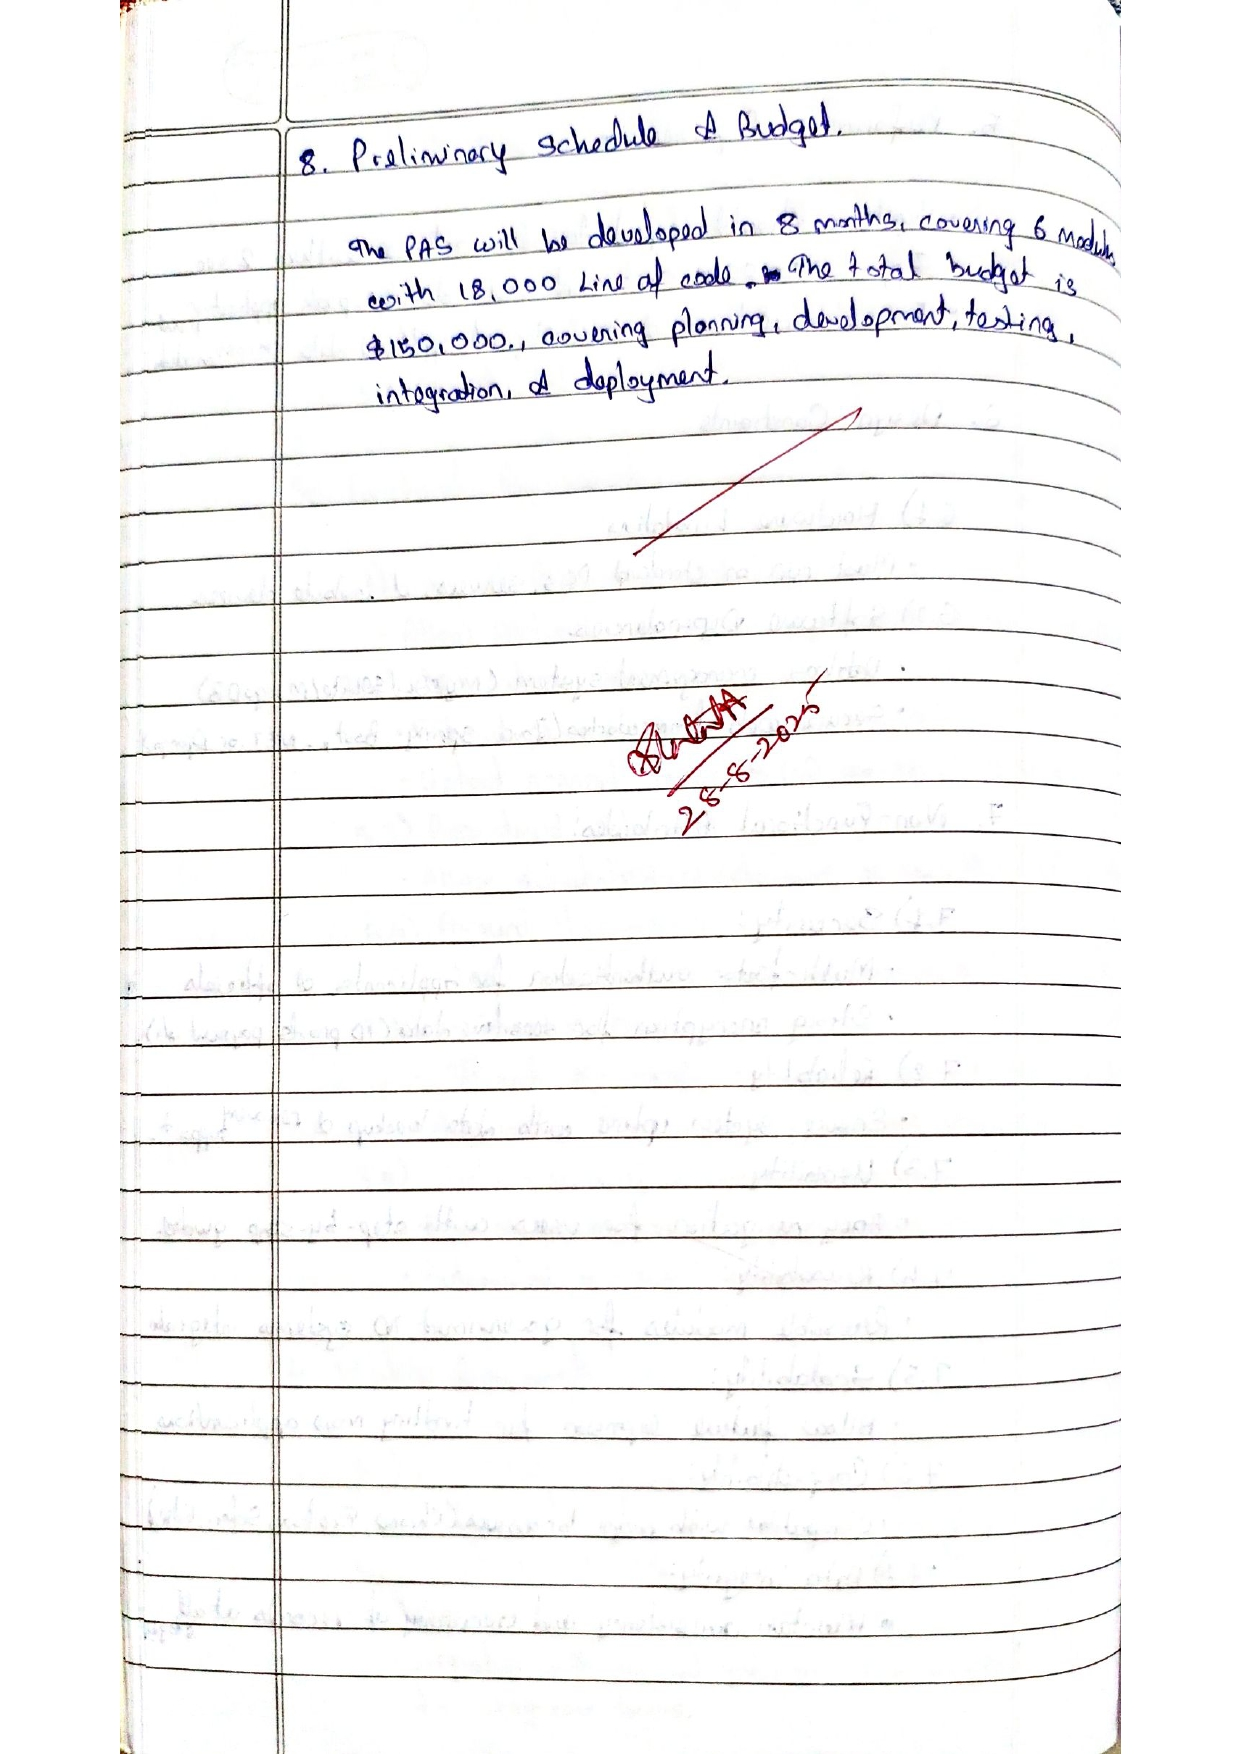 8. Preliminary Schedule & Budget.
The PAS will be developed in 8 months, covering 6 modules
with 18,000 Line of code. The total budget is
$150,000., covering planning, development, testing,
integration, & deployment.
28-8-2025